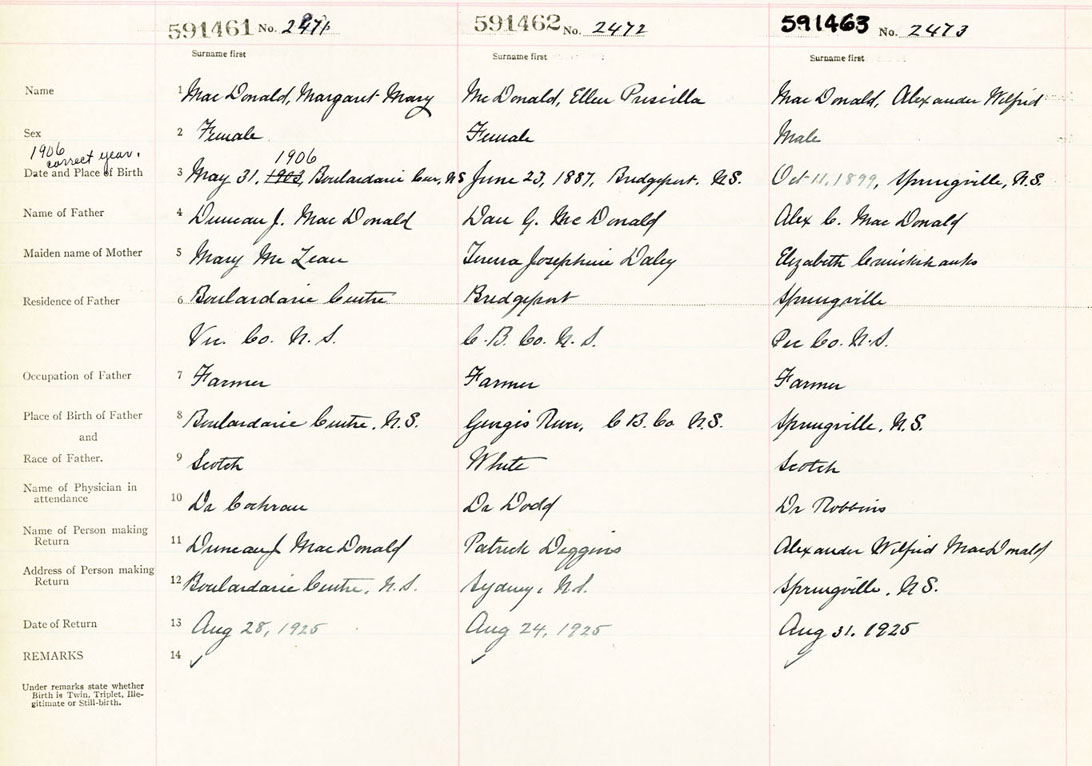 591461 No. 2471 591462 No. 2472 591463 No. 2473
Surname first Surname first Surname first
Name 1 Mac Donald, Margaret Mary Mc Donald, Ellen Priscilla Mac Donald, Alexander Wilfrid
Sex 2 Female Female Male
1906
correct year.
1906
Date and Place of Birth 3 May 31, 1903, Boulardarie Cen, NS June 23, 1887, Bridgeport, N.S. Oct 11, 1899, Springville, N.S.
Name of Father 4 Duncan J. Mac Donald Dan G. Mc Donald Alex C. Mac Donald
Maiden name of Mother 5 Mary Mc Lean Josephine Daley Elizabeth
Residence of Father 6 Boulardarie Centre Bridgeport Springville
Vic. Co. N. S. C. B. Co. N. S. Pic Co. N. S.
Occupation of Father 7 Farmer Farmer Farmer
Place of Birth of Father 8 Boulardarie Centre, N.S. Georges River, C B. Co N.S. Springville, N.S.
and
Race of Father. 9 Scotch White Scotch
Name of Physician in
attendance 10 Dr Cochran Dr Dodd Dr Robbins
Name of Person making
Return 11 Duncan J MacDonald Patrick Diggins Alexander Wilfrid MacDonald
Address of Person making
Return 12 Boulardarie Centre, N.S. Sydney, N.S. Springville, N.S.
Date of Return 13 Aug 28, 1925 Aug 24, 1925 Aug 31. 1925
REMARKS 14 ✓ ✓ ✓
Under remarks state whether
Birth is Twin, Triplet, Ille-
gitimate or Still-birth.